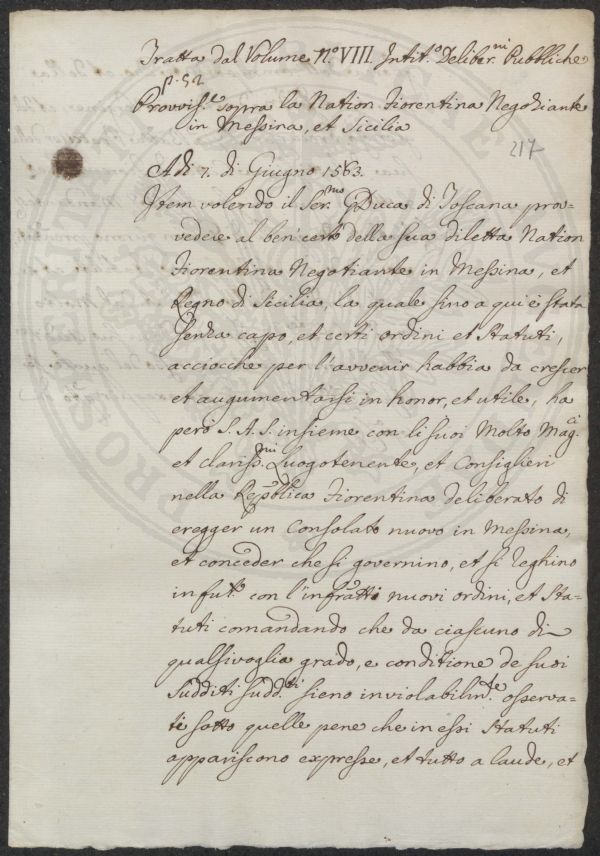 Tratta dal Volume N.º VIII. Intit.º Deliber.ni Pubbliche
p. 52
Provvis.e sopra la Nation Fiorentina Negoziante
in Messina, et Sicilia
217
Adi 7. di Giugno 1563.
Item volendo il Ser.mo G Duca di Toscana prov=
vedere al ben'cert della sua diletta Nation
Fiorentina Negotiante in Messina, et
Regno di Sicilia, la quale sino a qui è stata
senza capo, et certi ordini et Statuti,
acciocche per l'avvenir habbia da crescer
et augumentarsi in honor, et utile, ha
però S. A. S. insieme con li suoi Molto Mag.ci
et clariss.mi Luogotenente, et Consiglieri
nella Repblica Fiorentina deliberato di
eregger un Consolato nuovo in Messina,
et conceder che si governino, et si reghino
in fut.o con l'infratti nuovi ordini, et Sta=
tuti comandando che da ciascuno di
qualsivoglia grado, e conditione de suoi
Sudditi sudd.ti sieno inviolabilm.te osserva=
ti sotto quelle pene che in essi Statuti
appariscono expresse, et tutto a laude, et